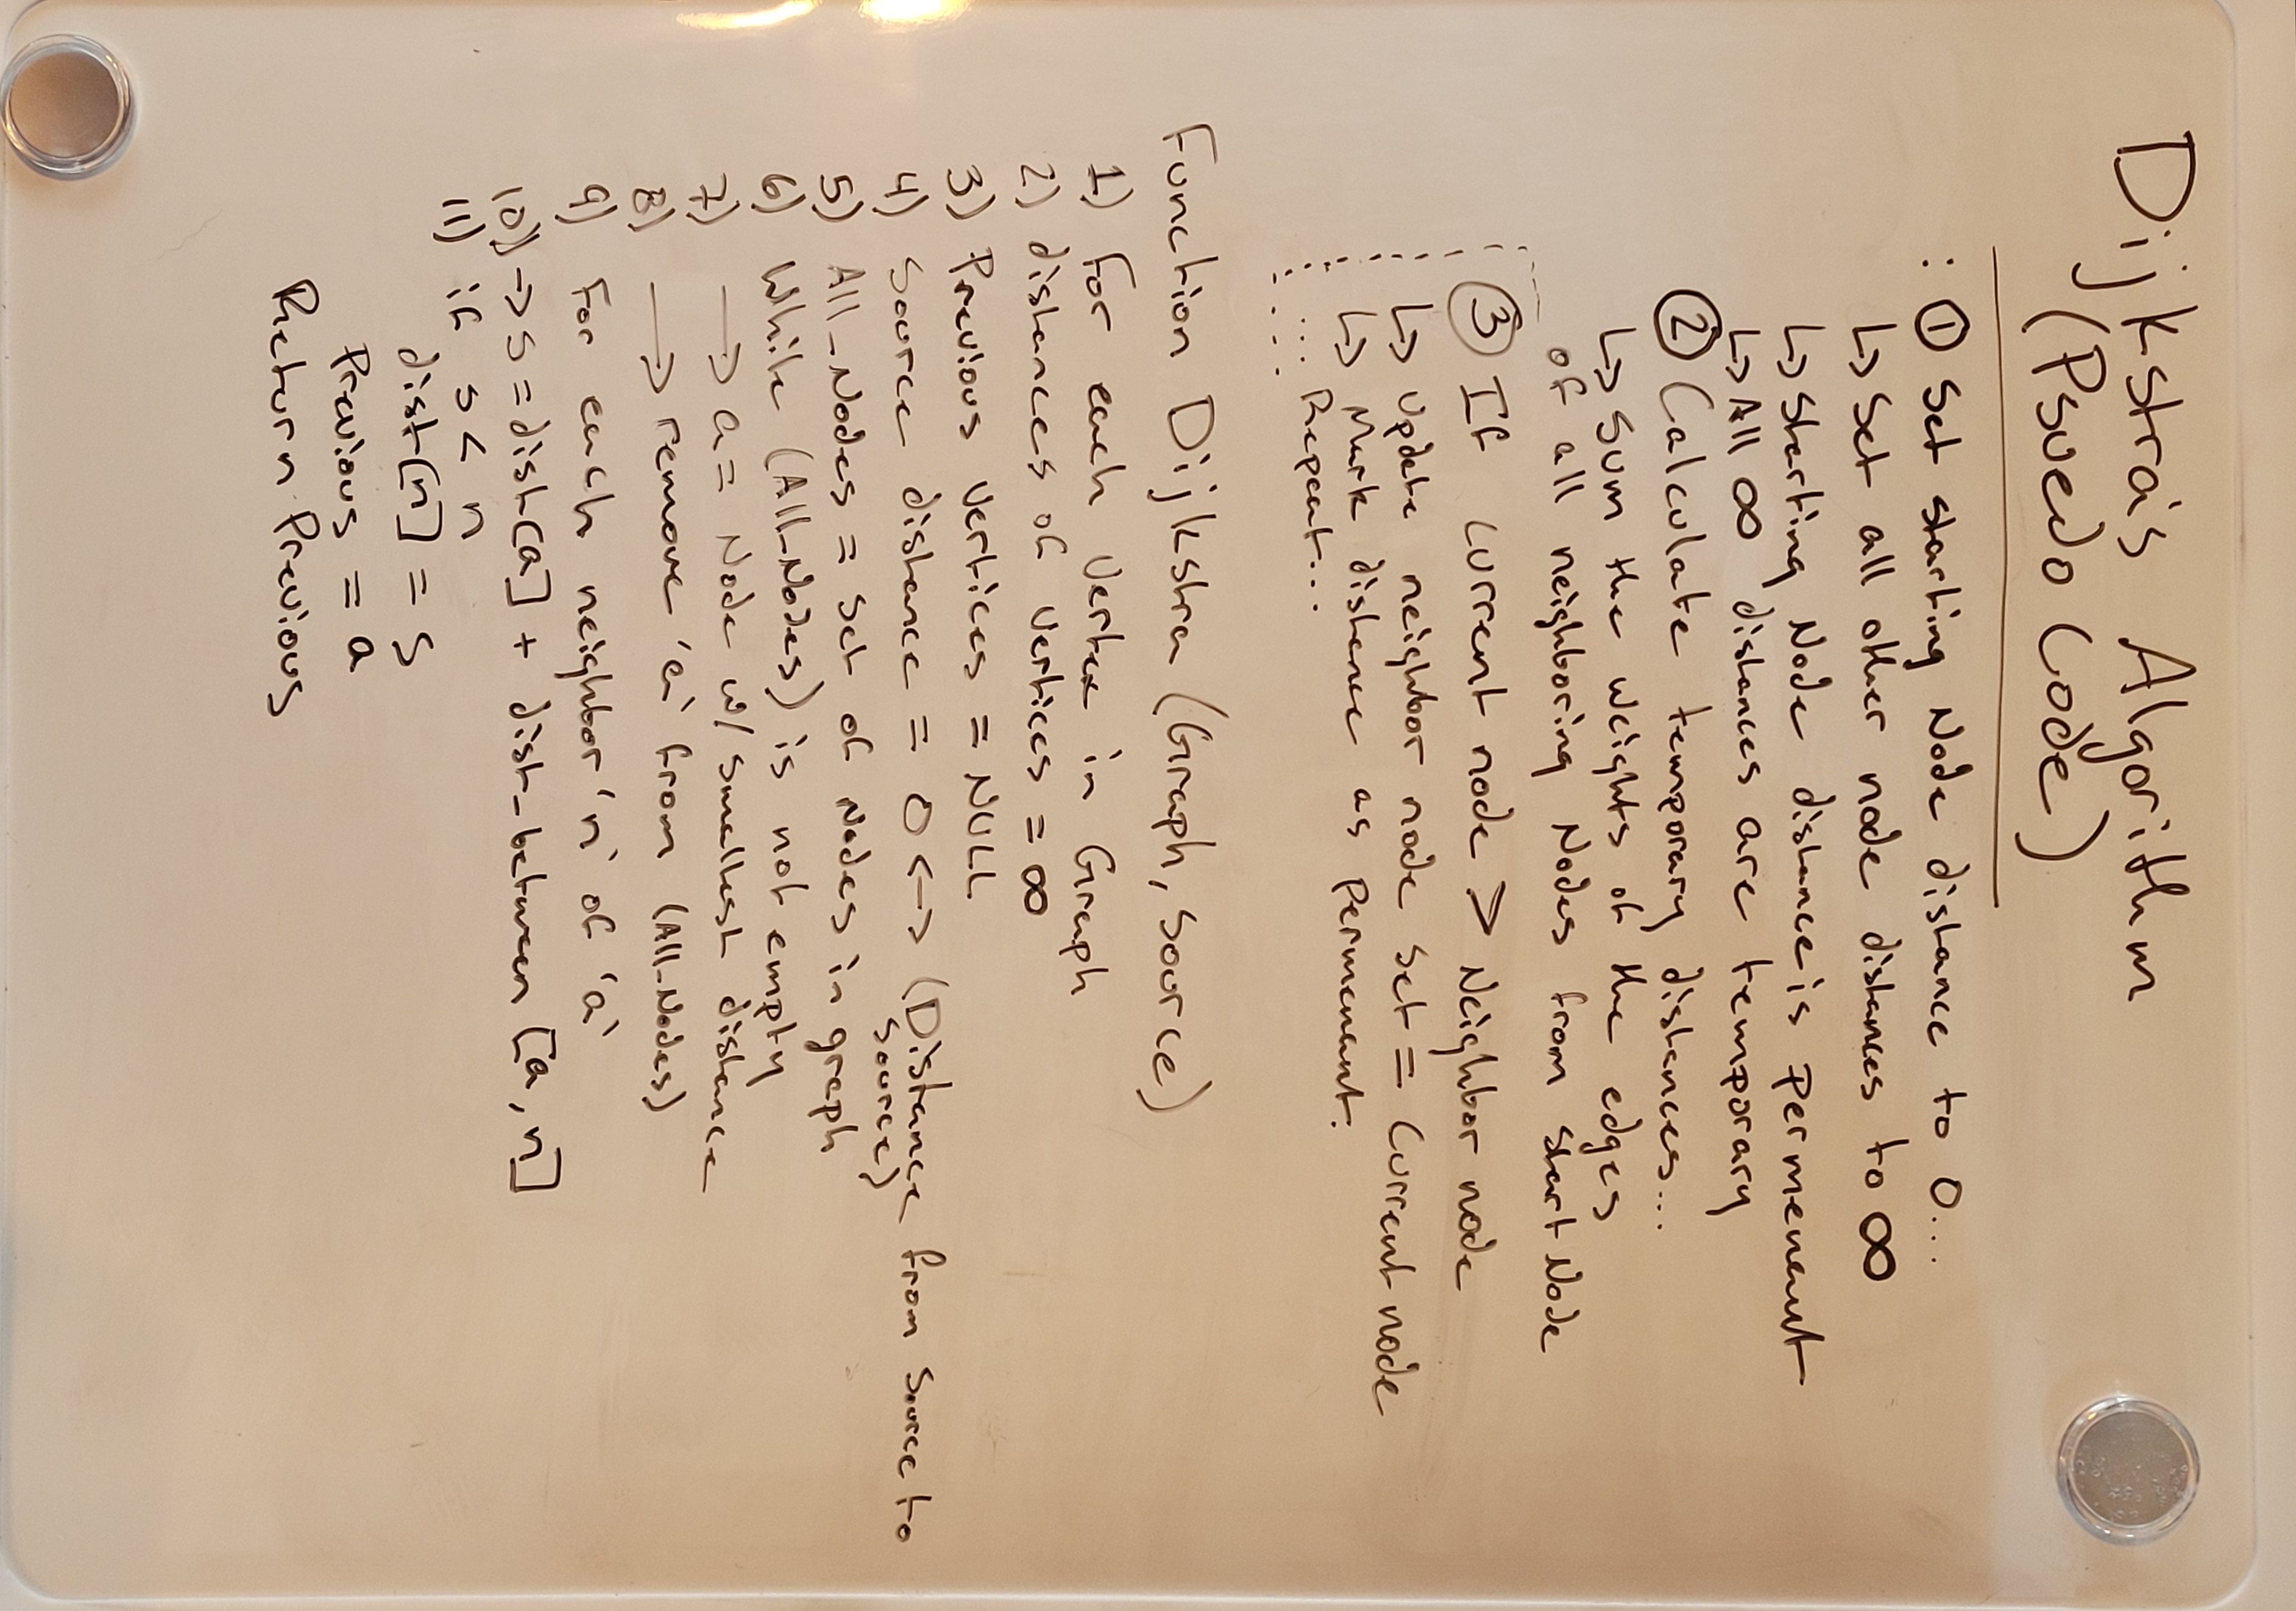 Dijkstra's Algorithm
(Psuedo Code)
: ① Set starting Node distance to 0...
↳ Set all other node distances to ∞
↳ Starting Node distance is permenant
↳ All ∞ distances are temporary
② Calculate temporary distances...
↳ Sum the weights of the edges
of all neighboring Nodes from start Node
③ If current node > Neighbor node
↳ Update neighbor node set = Current node
↳ Mark distance as permenant.
... Repeat...
Function Dijkstra (Graph, Source)
1) For each Vertex in Graph
2) distances of Vertices = ∞
3) Previous Vertices = NULL
4) Source distance = 0 <-> (Distance from Source to
Source)
5) All_Nodes = Set of Nodes in graph
6) While (All_Nodes) is not empty
7) → a = Node w/ smallest distance
8) → remove 'a' from (All_Nodes)
9) For each neighbor 'n' of 'a'
10) → S = dist[a] + dist_between [a, n]
11) if S < n
dist[n] = S
Previous = a
Return Previous